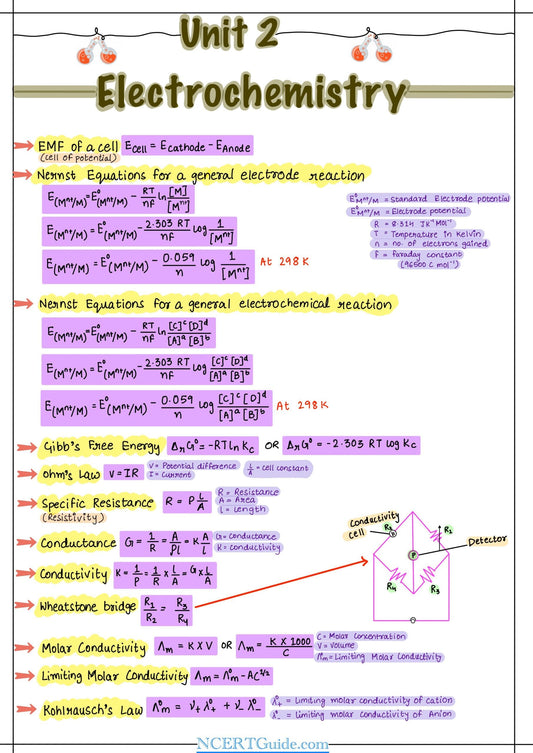 Unit 2
Electrochemistry
EMF of a cell E_cell = E_cathode - E_Anode
(cell of potential)
Nernst Equations for a general electrode reaction
E(Mⁿ⁺/M) = E⁰(Mⁿ⁺/M) - RT/nf ln [M]/[Mⁿ⁺]
E(Mⁿ⁺/M) = E⁰(Mⁿ⁺/M) - 2.303 RT/nf log 1/[Mⁿ⁺]
E(Mⁿ⁺/M) = E⁰(Mⁿ⁺/M) - 0.059/n log 1/[Mⁿ⁺] At 298 K
E⁰Mⁿ⁺/M = Standard Electrode potential
E⁰Mⁿ⁺/M = Electrode potential
R = 8.314 JK⁻¹Mol⁻¹
T = Temperature in Kelvin
n = no. of electrons gained
F = faraday constant
(96500 C mol⁻¹)
Nernst Equations for a general electrochemical reaction
E(Mⁿ⁺/M) = E⁰(Mⁿ⁺/M) - RT/nf ln [C]ᶜ [D]ᵈ/[A]ᵃ [B]ᵇ
E(Mⁿ⁺/M) = E⁰(Mⁿ⁺/M) - 2.303 RT/nf log [C]ᶜ [D]ᵈ/[A]ᵃ [B]ᵇ
E(Mⁿ⁺/M) = E⁰(Mⁿ⁺/M) - 0.059/n log [C]ᶜ [D]ᵈ/[A]ᵃ [B]ᵇ At 298 K
Gibb's Free Energy ΔᵣG⁰ = -RT ln Kc OR ΔᵣG⁰ = -2.303 RT log Kc
Ohm's Law V = IR V = Potential difference l/A = cell constant
I = Current
Specific Resistance R = P l/A R = Resistance
A = Area
l = length
(Resistivity)
Conductance G = 1/R = A/ρl = K A/l G = conductance
K = conductivity
Conductivity K = 1/P = 1/R × l/A = G × l/A
Wheatstone bridge R₁/R₂ = R₃/R₄
Conductivity
cell
R₂
R₁
P
Detector
R₄
R₃
Molar Conductivity Λm = K X V OR Λm = K X 1000/C C = Molar Concentration
V = Volume
Λ⁰m = Limiting Molar Conductivity
Limiting Molar Conductivity Λm = Λ⁰m - AC¹ᐟ²
Kohlrausch's Law Λ⁰m = ν₊ λ⁰₊ + ν₋ λ⁰₋ λ⁰₊ = Limiting molar conductivity of cation
λ⁰₋ = limiting molar conductivity of Anion
NCERTGuide.com